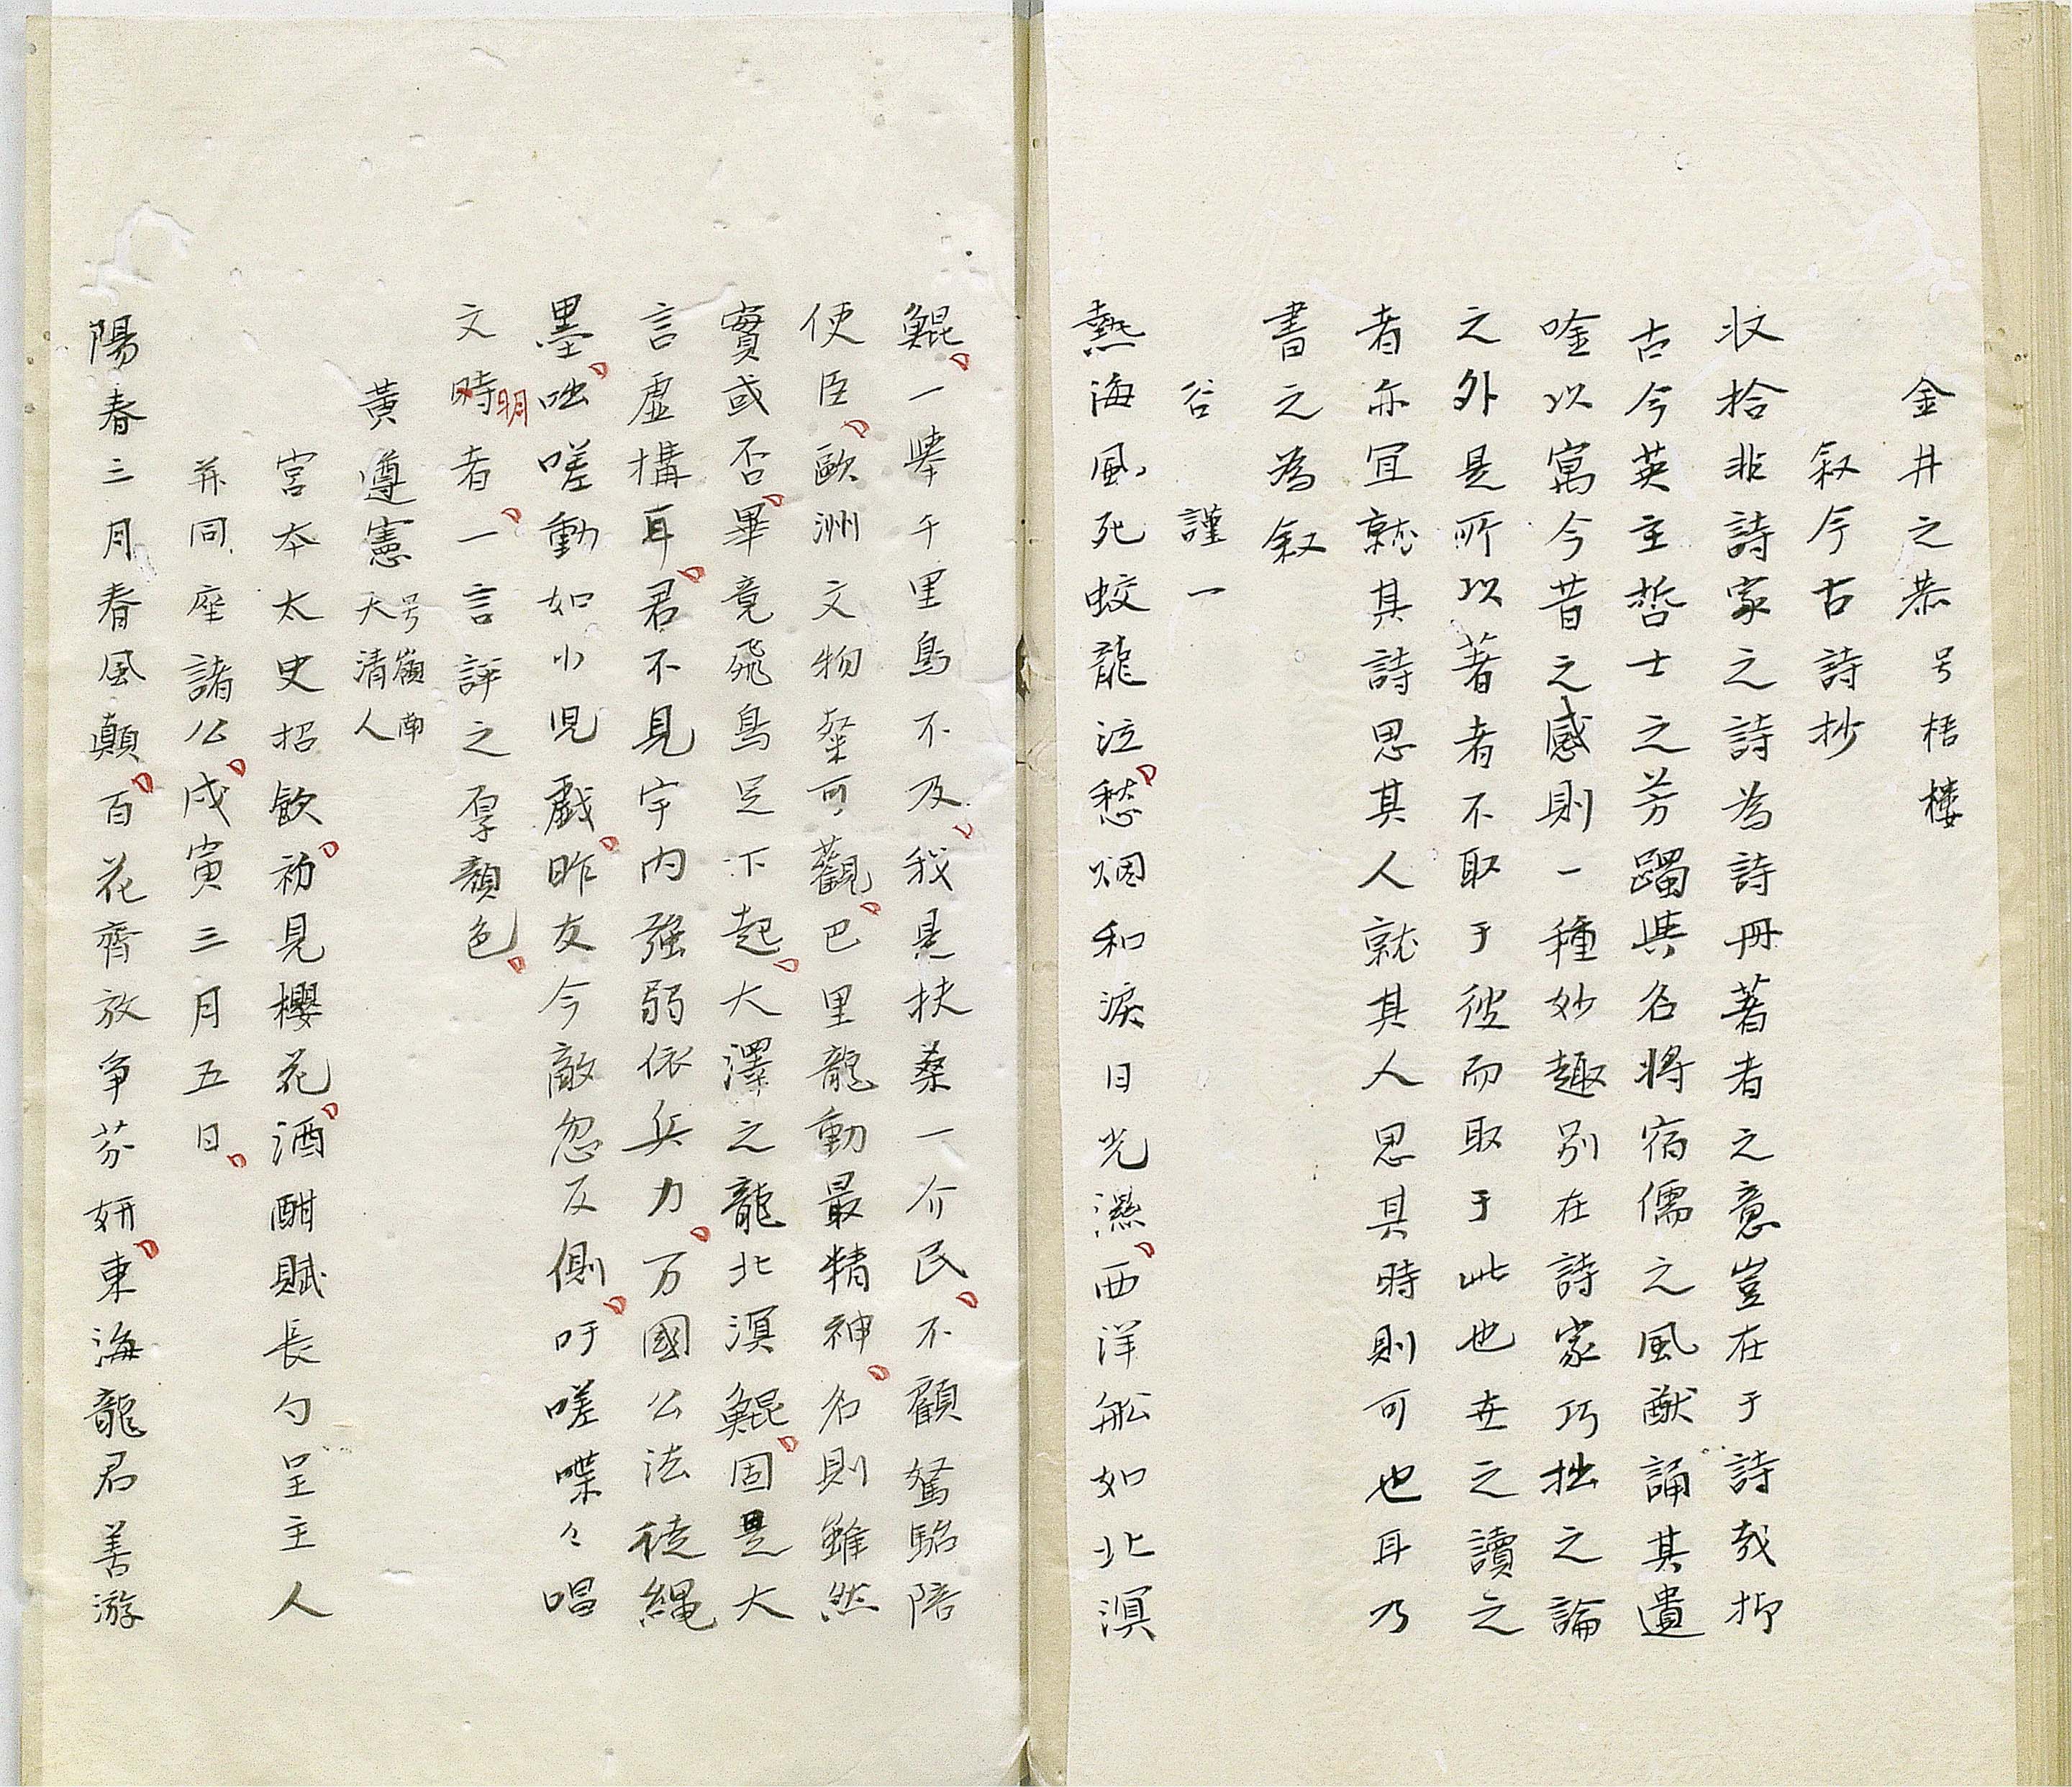 金井之恭 号梧樓
叙今古詩抄
収拾非詩家之詩為詩冊著者之意豈在于詩㢤抑
古今英主哲士之芳躅與名将宿儒之風猷誦其遺
唫以寓今昔之感則一種妙趣別在詩家巧拙之論
之外是所以著者不取于彼而取于此也世之讀之
者亦宜就其詩思其人就其人思其時則可也耳乃
書之為叙
谷謹一
熱海風死蛟龍泣愁烟和淚日光濕西洋舩如北溟
鯤一擧千里鳥不及我是扶桑一介民不顧駑駘陪
使臣歐洲文物粲可觀巴里龍動最精神名則雖然
實或否畢竟飛鳥足下起大澤之龍北溟鯤固是大
言虛搆耳君不見宇内强弱依兵力万國公法徒縄
墨咄嗟動如小児戯昨友今敵忽反側吁嗟喋々唱
文時明者一言評之厚顏色
黄遵憲 号嶺南 大清人
宮本太史招飲初見櫻花酒酣賦長句呈主人
并同座諸公戊寅三月五日
陽春三月春風顛百花齊放爭芬妍東海龍君善游